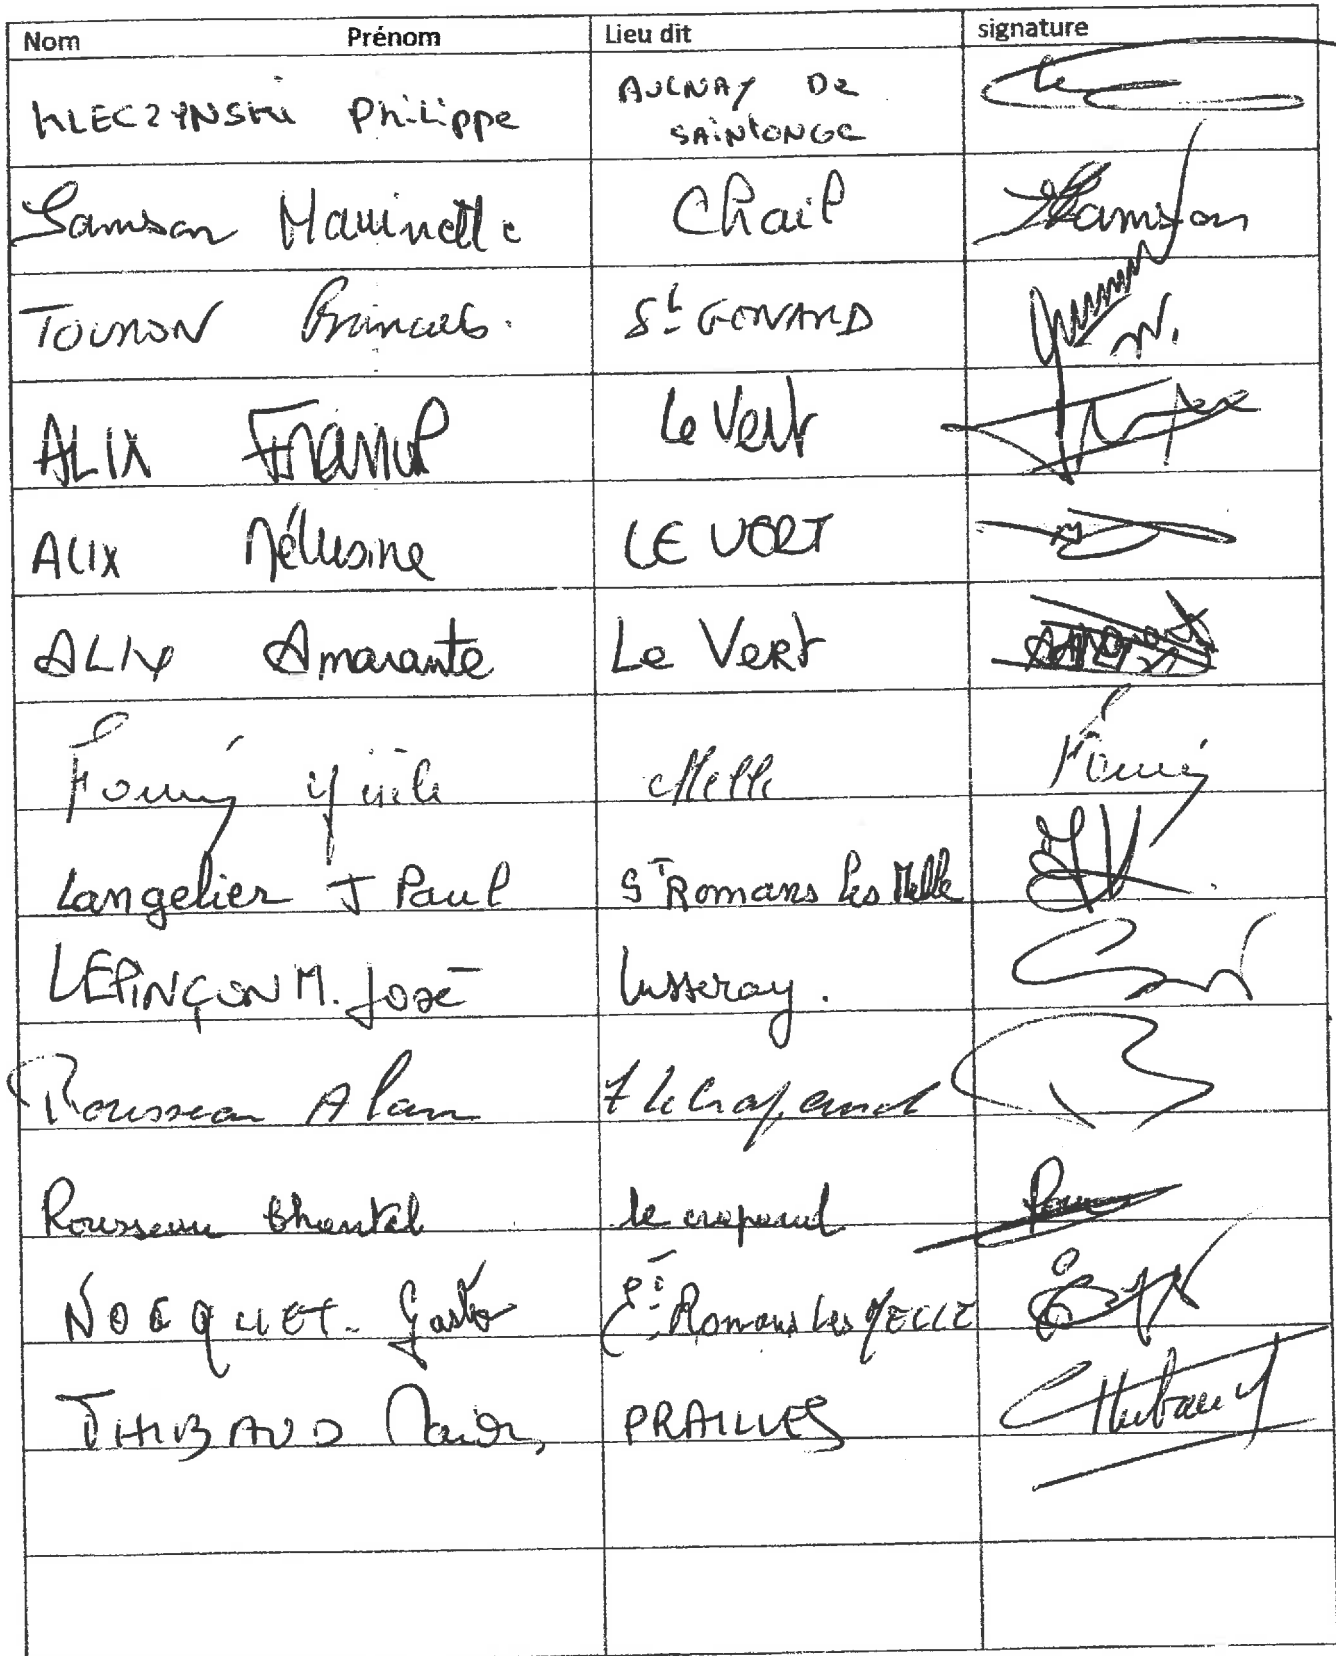 Nom Prénom Lieu dit signature
KLECZYNSKI Philippe AULNAY DE
SAINTONGE
Samson Maurinette Chail Samson
TOURON Francois. St GENARD
ALIX Franck Le Vert
ALIX Mélusine LE VERT
ALIX Amarante Le Vert
Melle
Langelier J Paul St Romans les Melle
LEPINÇON M. José Lusseray.
Rousseau Alain 7 le Crapaud
Rousseau Chantal le crapaud
NOCQUET. St Romans les MELLE
THIBAUD PRAILLES Thibaud